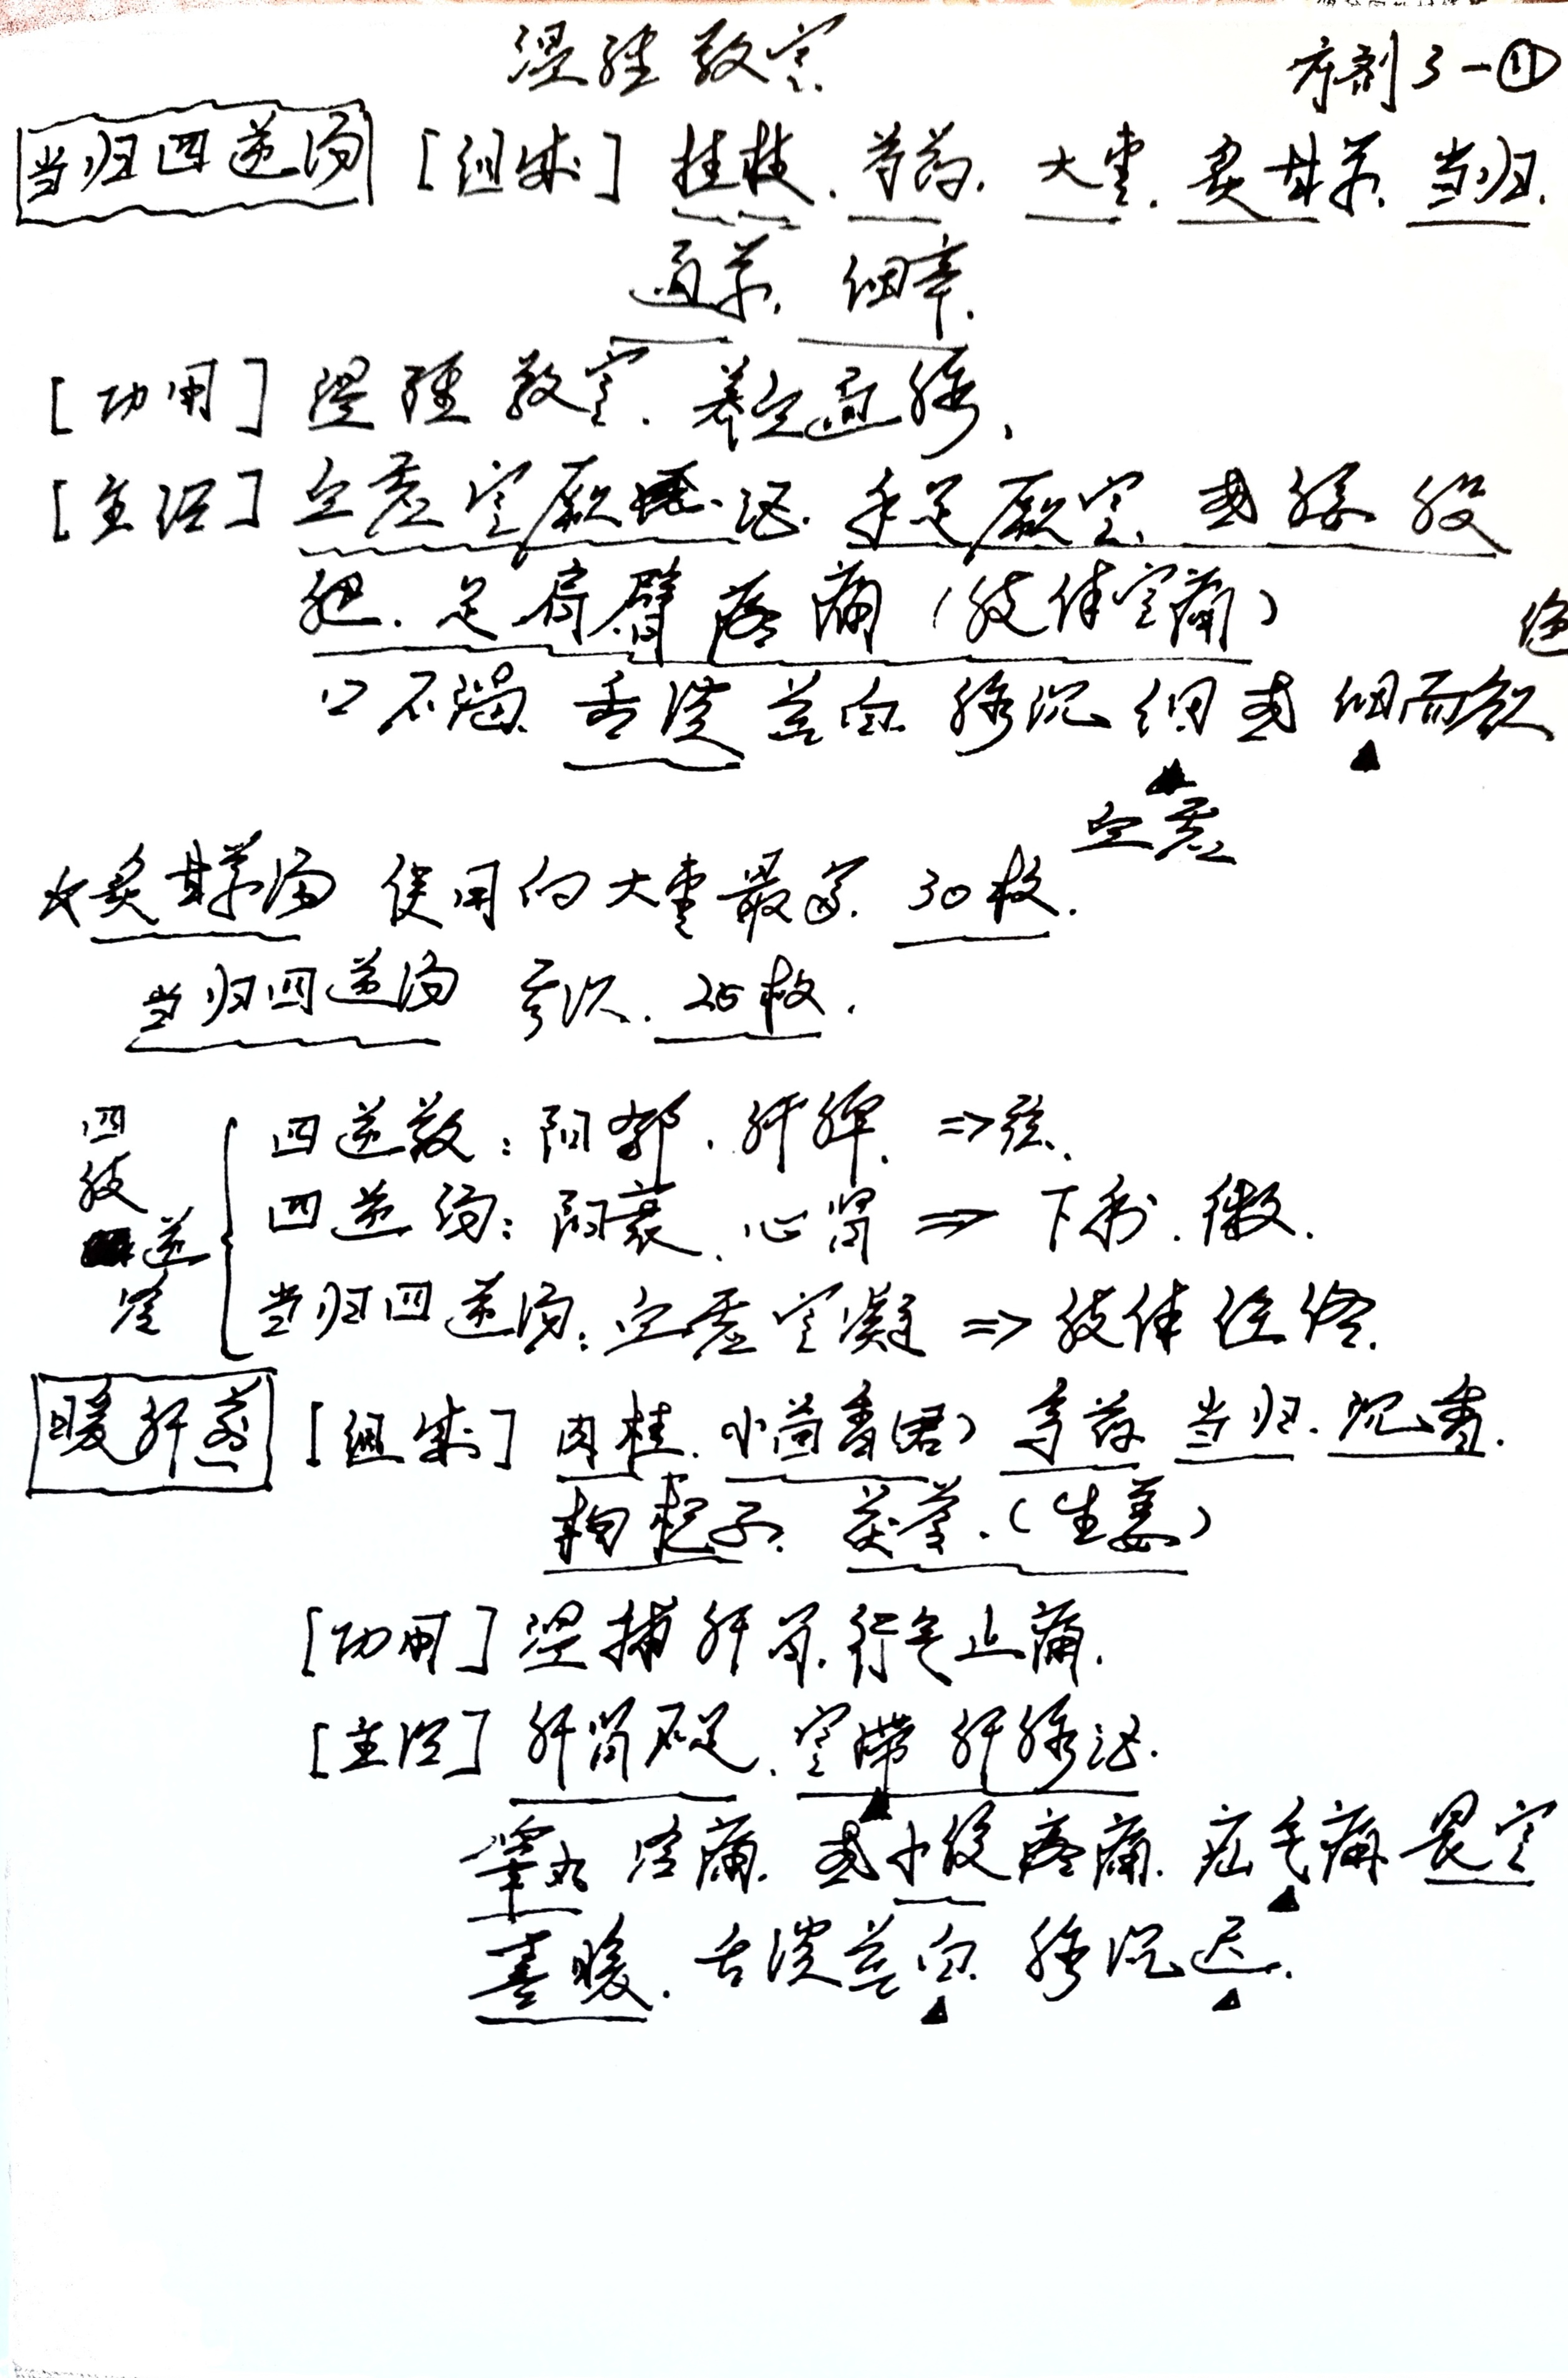 温经散寒
方剂3-⑪
当归四逆汤 [组成] 桂枝. 芍药. 大枣. 炙甘草. 当归.
通草. 细辛.
[功用] 温经散寒. 养血通脉.
[主治] 血虚寒厥证. 手足厥寒. 或腰股
腿. 足肩臂疼痛 (肢体寒痛)
口不渴. 舌淡苔白. 脉沉细或细而欲
绝
血虚
炙甘草汤 使用的大枣最多. 30枚.
当归四逆汤 其次. 25枚.
四肢逆冷
四逆散: 阳郁. 肝脾. ⇒弦.
四逆汤: 阳衰. 心肾 ⇒ 下利. 微.
当归四逆汤: 血虚寒凝 ⇒ 肢体经络.
暖肝煎 [组成] 肉桂. 小茴香(君) 乌药 当归. 沉香.
枸杞子. 茯苓. (生姜)
[功用] 温补肝肾. 行气止痛.
[主治] 肝肾不足. 寒滞肝脉证.
睾丸冷痛. 或小腹疼痛. 疝气痛. 畏寒
喜暖. 舌淡苔白. 脉沉迟.